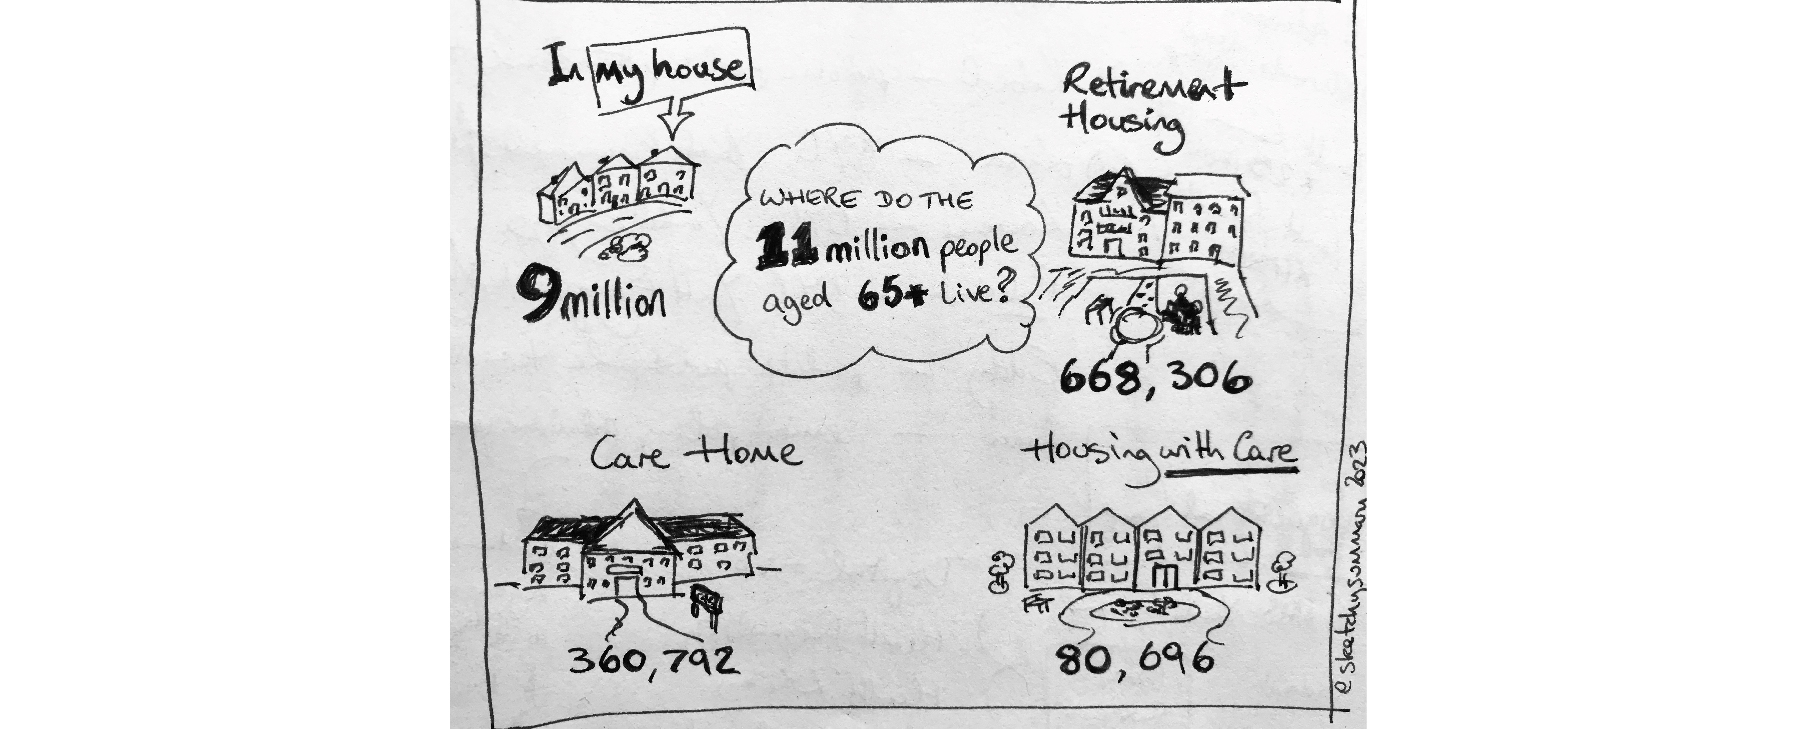 In my house
Retirement
Housing
WHERE DO THE
11 million people
aged 65+ live?
9 million
668,306
Care Home
Housing with Care
360,792
80,696
@sketchysummary 2023